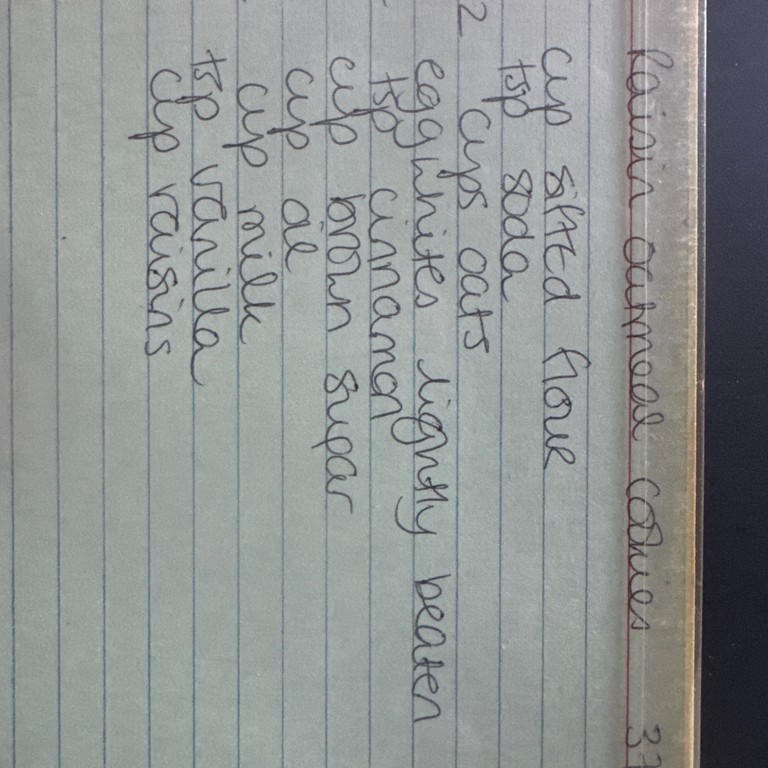 Raisin oatmeal cookies 37
cup sifted flour
tsp soda
2 cups oats
egg whites lightly beaten
tsp cinnamon
cup brown sugar
cup oil
cup milk
tsp vanilla
cup raisins